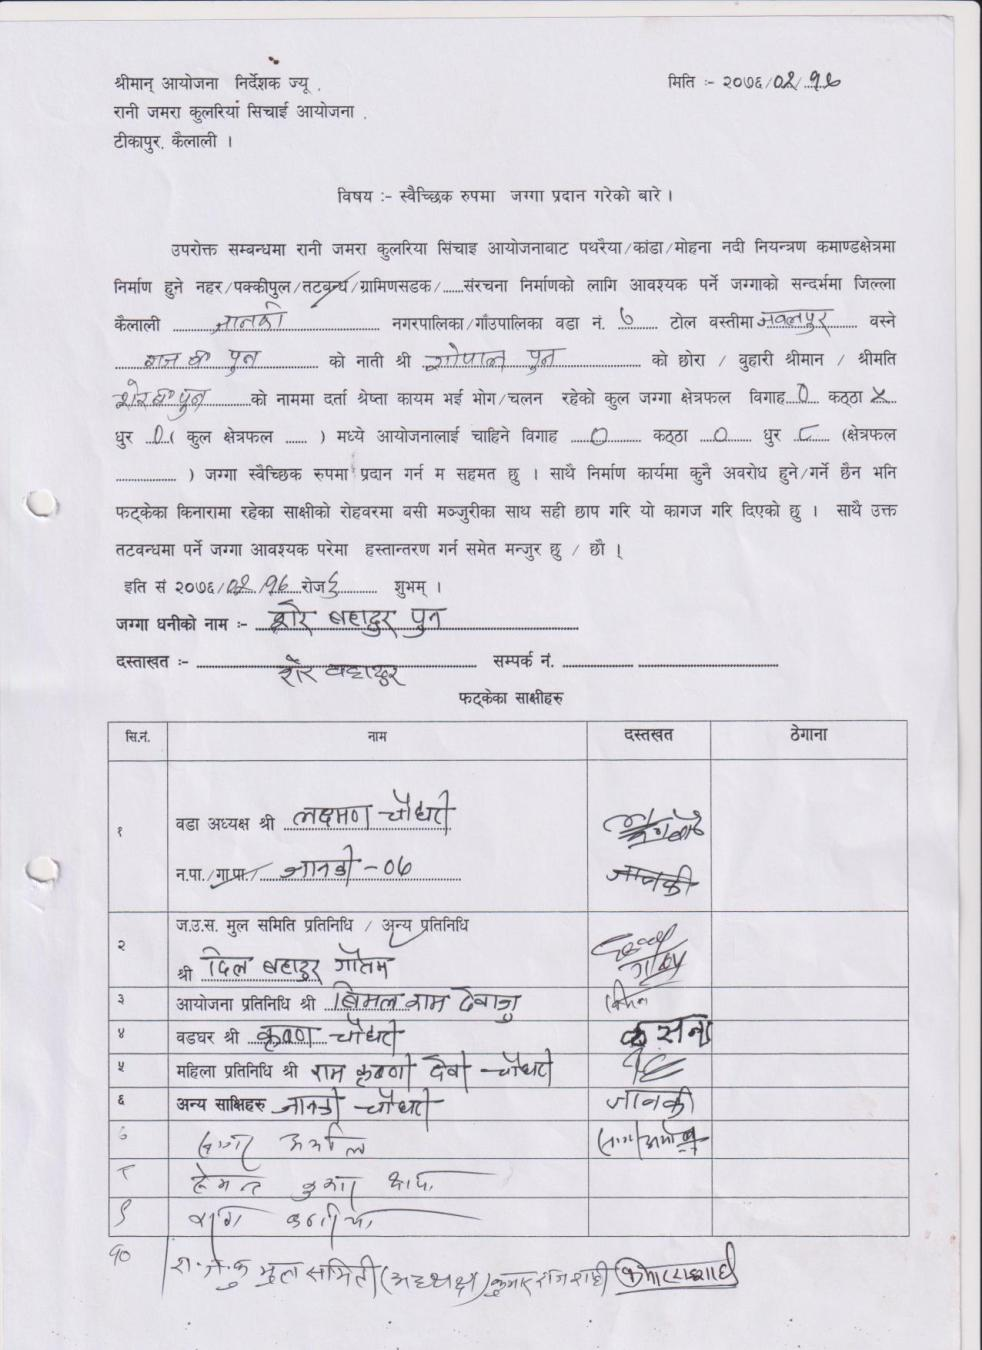 श्रीमान् आयोजना निर्देशक ज्यू .
मिति :- २०७६/०२/१६
रानी जमरा कुलरियां सिचाई आयोजना .
टीकापुर, कैलाली ।
विषय :- स्वैच्छिक रुपमा जग्गा प्रदान गरेको बारे ।
उपरोक्त सम्बन्धमा रानी जमरा कुलरिया सिंचाइ आयोजनाबाट पथरैया/कांडा/मोहना नदी नियन्त्रण कमाण्डक्षेत्रमा
निर्माण हुने नहर/पक्कीपुल/तटबन्ध/ग्रामिणसडक/......संरचना निर्माणको लागि आवश्यक पर्ने जग्गाको सन्दर्भमा जिल्ला
कैलाली जानकी नगरपालिका/गाँउपालिका वडा नं. ७ टोल वस्तीमा नवलपुर वस्ने
पुन को नाती श्री गोपाल पुन को छोरा / बुहारी श्रीमान / श्रीमति
शेर ब पुन को नाममा दर्ता श्रेष्ता कायम भई भोग/चलन रहेको कुल जग्गा क्षेत्रफल विगाह 0 कठ्ठा
धुर 0 ( कुल क्षेत्रफल ...... ) मध्ये आयोजनालाई चाहिने विगाह 0 कठ्ठा 0 धुर ८ (क्षेत्रफल
.................. ) जग्गा स्वैच्छिक रुपमा प्रदान गर्न म सहमत छु । साथै निर्माण कार्यमा कुनै अवरोध हुने/गर्ने छैन भनि
फट्केका किनारामा रहेका साक्षीको रोहवरमा बसी मञ्जुरीका साथ सही छाप गरि यो कागज गरि दिएको छु । साथै उक्त
तटवन्धमा पर्ने जग्गा आवश्यक परेमा हस्तान्तरण गर्न समेत मन्जुर छु / छौ ।
इति सं २०७६/०२/१६ रोज ६ शुभम् ।
जग्गा धनीको नाम :- शेर बहादुर पुन
दस्ताखत :- शेर बहादुर सम्पर्क नं. ..................
फट्केका साक्षीहरु
सि.नं. नाम दस्तखत ठेगाना
१ वडा अध्यक्ष श्री लक्ष्मण चौधरी
न.पा./गा.पा./ जानकी -०७ जानकी
२ ज.उ.स. मुल समिति प्रतिनिधि / अन्य प्रतिनिधि
श्री दिल बहादुर गौतम
३ आयोजना प्रतिनिधि श्री बिमल राम देवाजु
४ वडघर श्री कृष्ण चौधरी
५ महिला प्रतिनिधि श्री राम कृष्णी देवी चौधरी
६ अन्य साक्षिहरु जानकी चौधरी जानकी
७
८ हेमन्त कुमार
९
१० रा.ज.कु मुल समिती (अध्यक्ष)